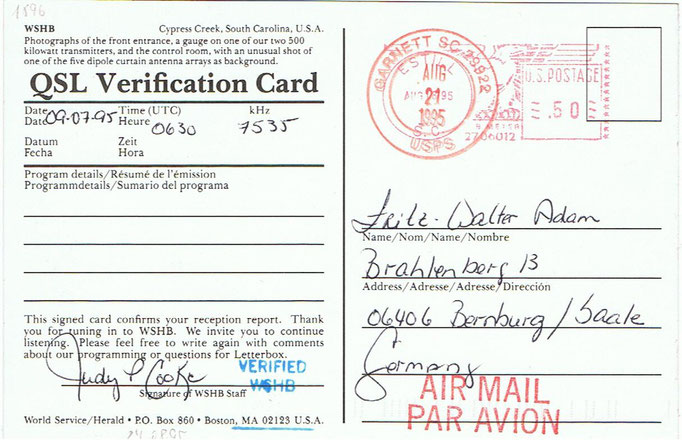 1896
WSHB Cypress Creek, South Carolina, U.S.A.
Photographs of the front entrance, a gauge on one of our two 500
kilowatt transmitters, and the control room, with an unusual shot of
one of the five dipole curtain antenna arrays as background.
QSL Verification Card
Date Time (UTC) kHz
Date Heure
09-07-95 0630 7535
Datum Zeit
Fecha Hora
Program details/Résumé de l'émission
Programmdetails/Sumario del programa
This signed card confirms your reception report. Thank
you for tuning in to WSHB. We invite you to continue
listening. Please feel free to write again with comments
about our programming or questions for Letterbox.
Judy P Cooke
VERIFIED
WSHB
Signature of WSHB Staff
World Service/Herald • P.O. Box 860 • Boston, MA 02123 U.S.A.
GARNETT SC 29922
AUG
21
1995
USPS
U.S. POSTAGE
.50
Fritz-Walter Adam
Name/Nom/Name/Nombre
Brahlenberg 13
Address/Adresse/Adresse/Dirección
06406 Bernburg/Saale
Germany
AIR MAIL
PAR AVION